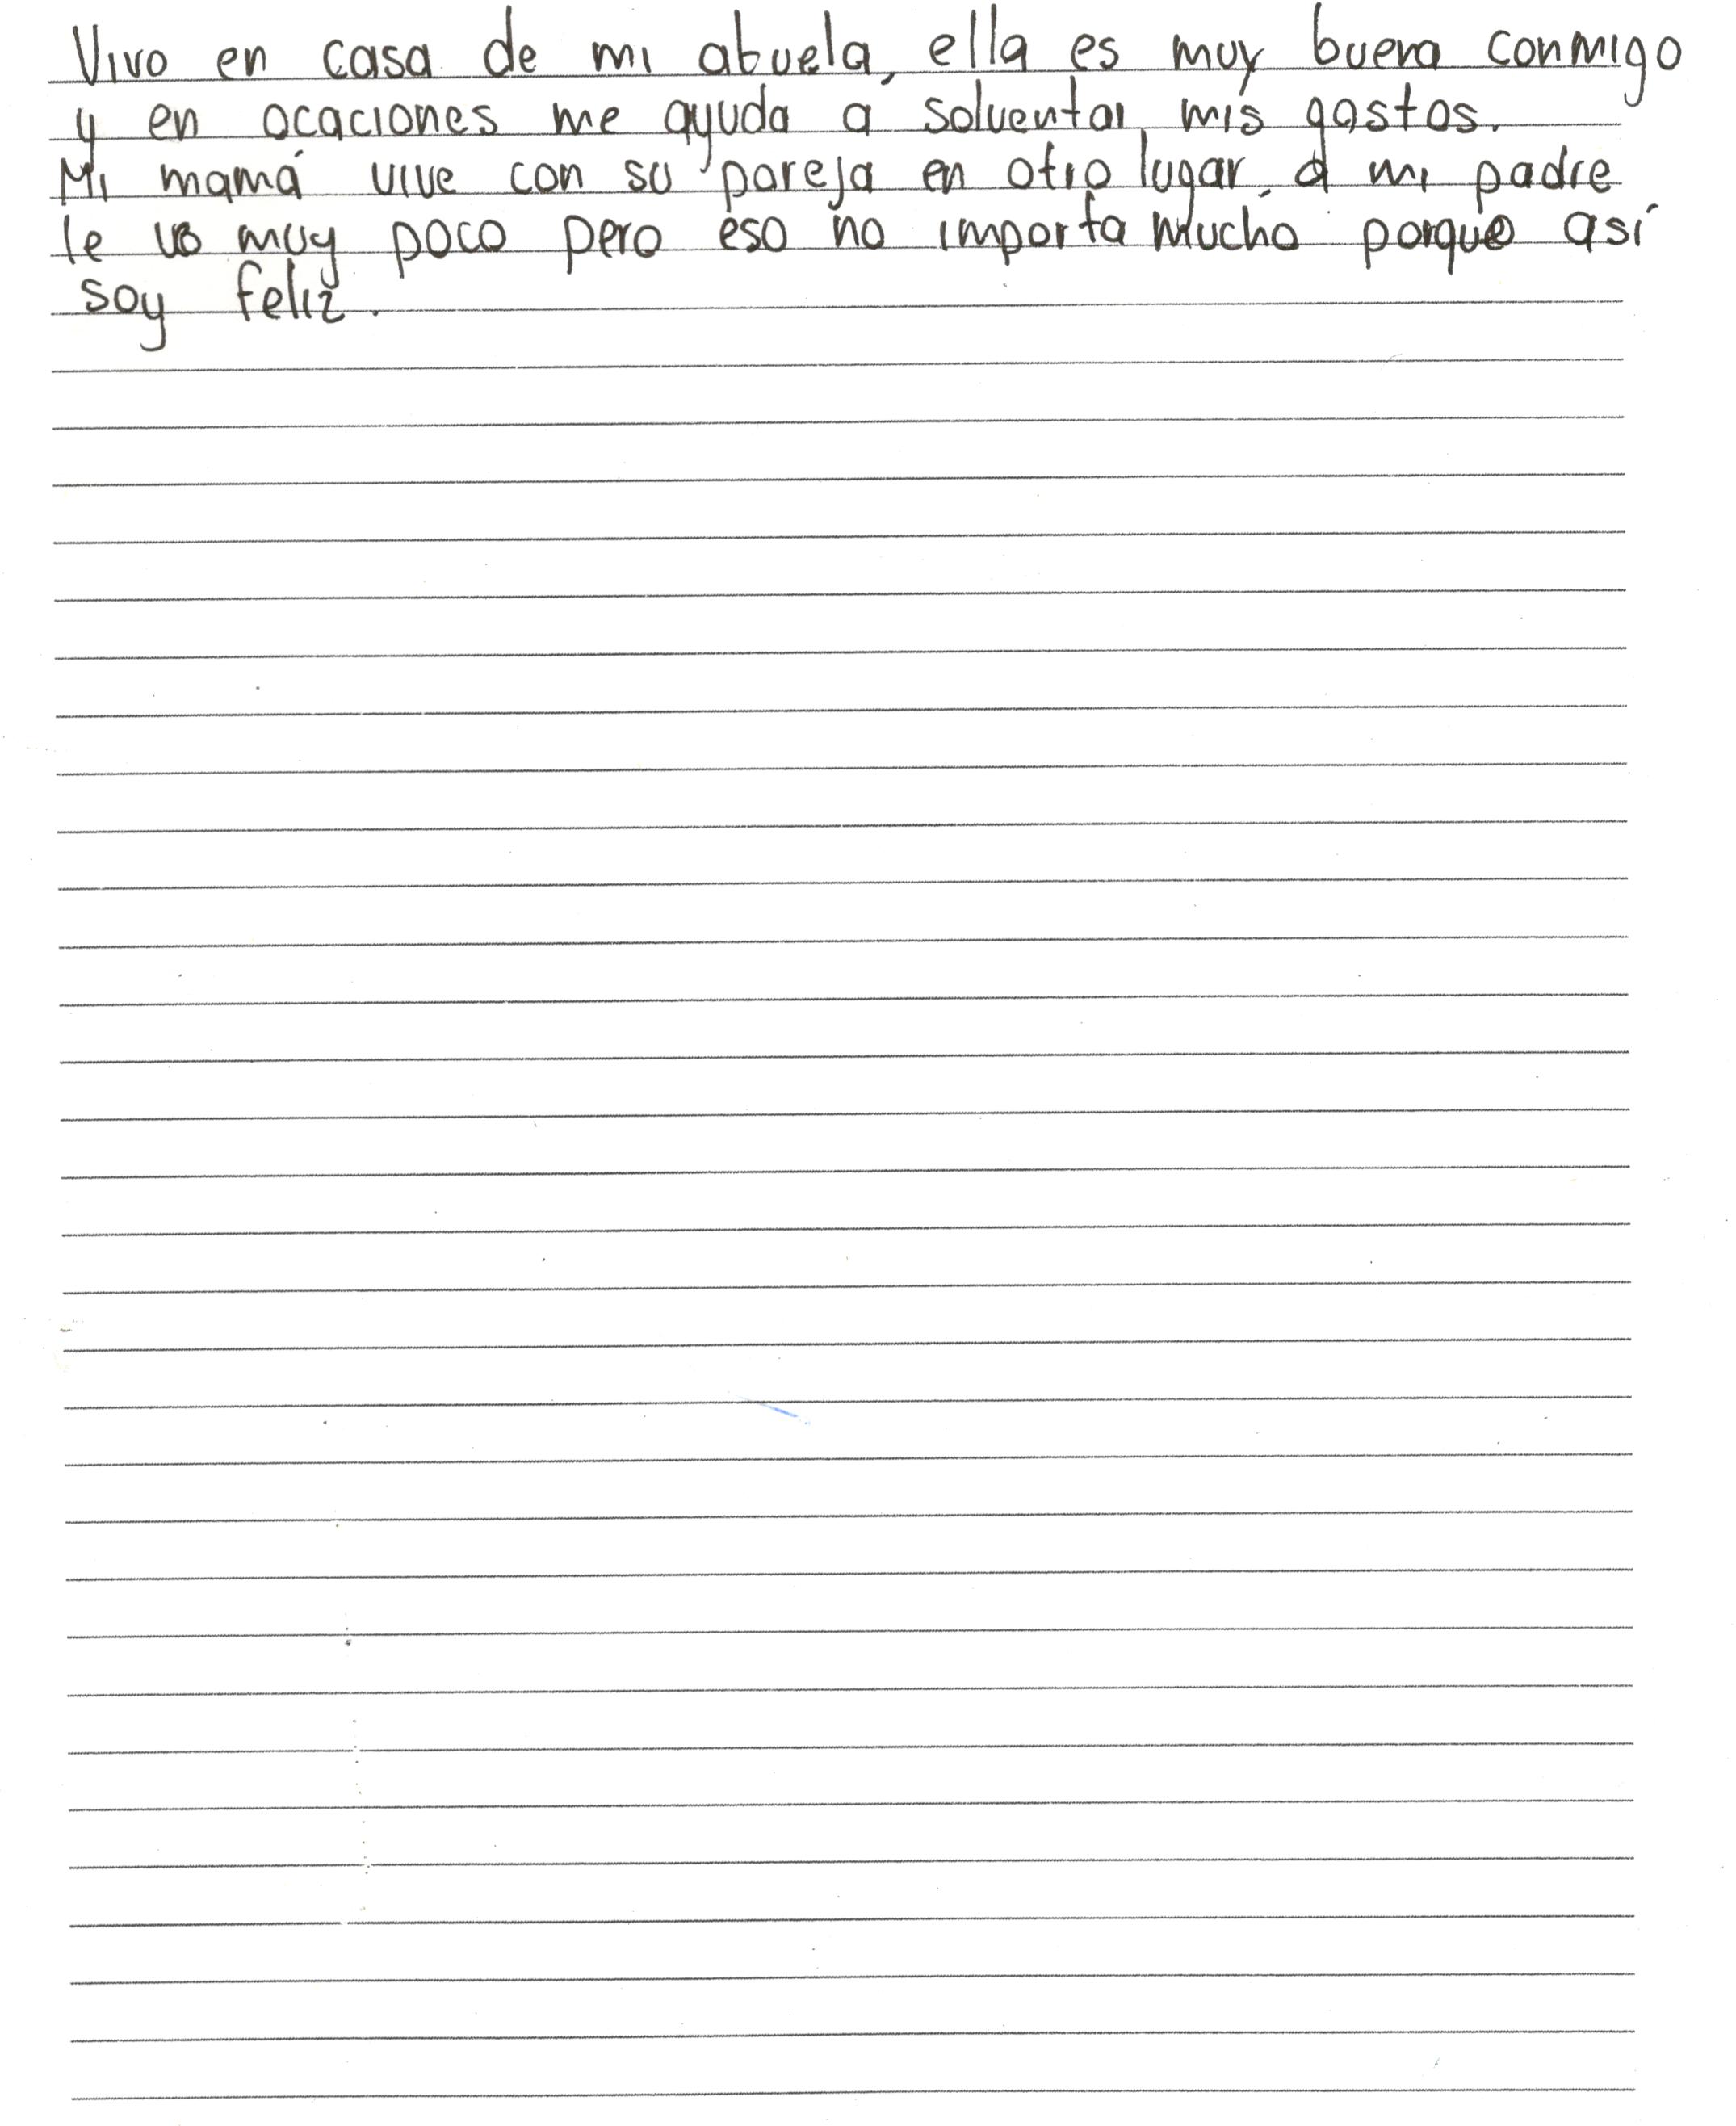 Vivo en casa de mi abuela, ella es muy buena conmigo
y en ocaciones me ayuda a solventar mis gastos.
Mi mamá vive con su pareja en otro lugar, a mi padre
le veo muy poco pero eso no importa mucho porque así
soy feliz.